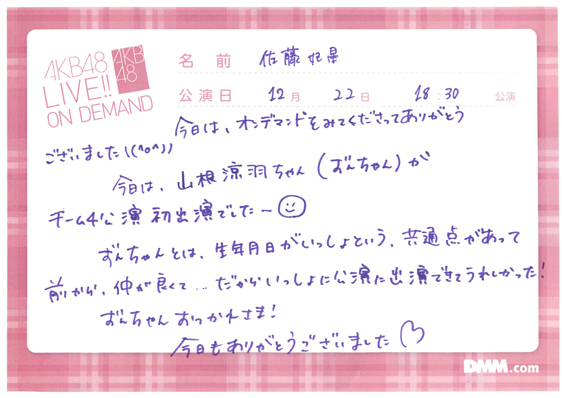 AKB48
LIVE!!
ON DEMAND
AKB
48
名前 佐藤妃星
公演日 12月 22日 18:30 公演
今日は、オンデマンドをみてくださってありがとう
ございました\((^o^))
今日は、山根涼羽ちゃん(ずんちゃん)が
チーム4公演 初出演でした〜
ずんちゃんとは、生年月日がいっしょという、共通点があって
前から、仲が良くて...だからいっしょに公演に出演できてうれしかった!
ずんちゃんおつかれさま!
今日もありがとうございました♡
DMM.com